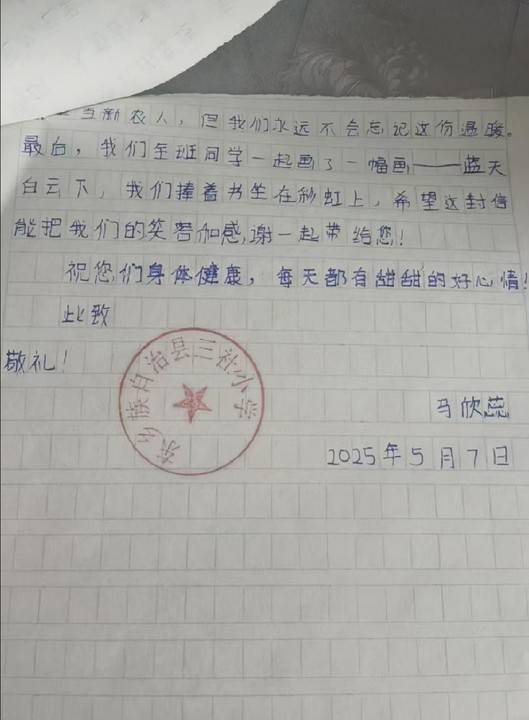 当新农人，但我们永远不会忘记这份温暖。
最后，我们全班同学一起画了一幅画——蓝天
白云下，我们捧着书坐在彩虹上，希望这封信
能把我们的笑容和感谢一起带给您！
祝您们身体健康，每天都有甜甜的好心情！
此致
敬礼！
东乡族自治县三社小学
马欣蕊
2025年5月7日